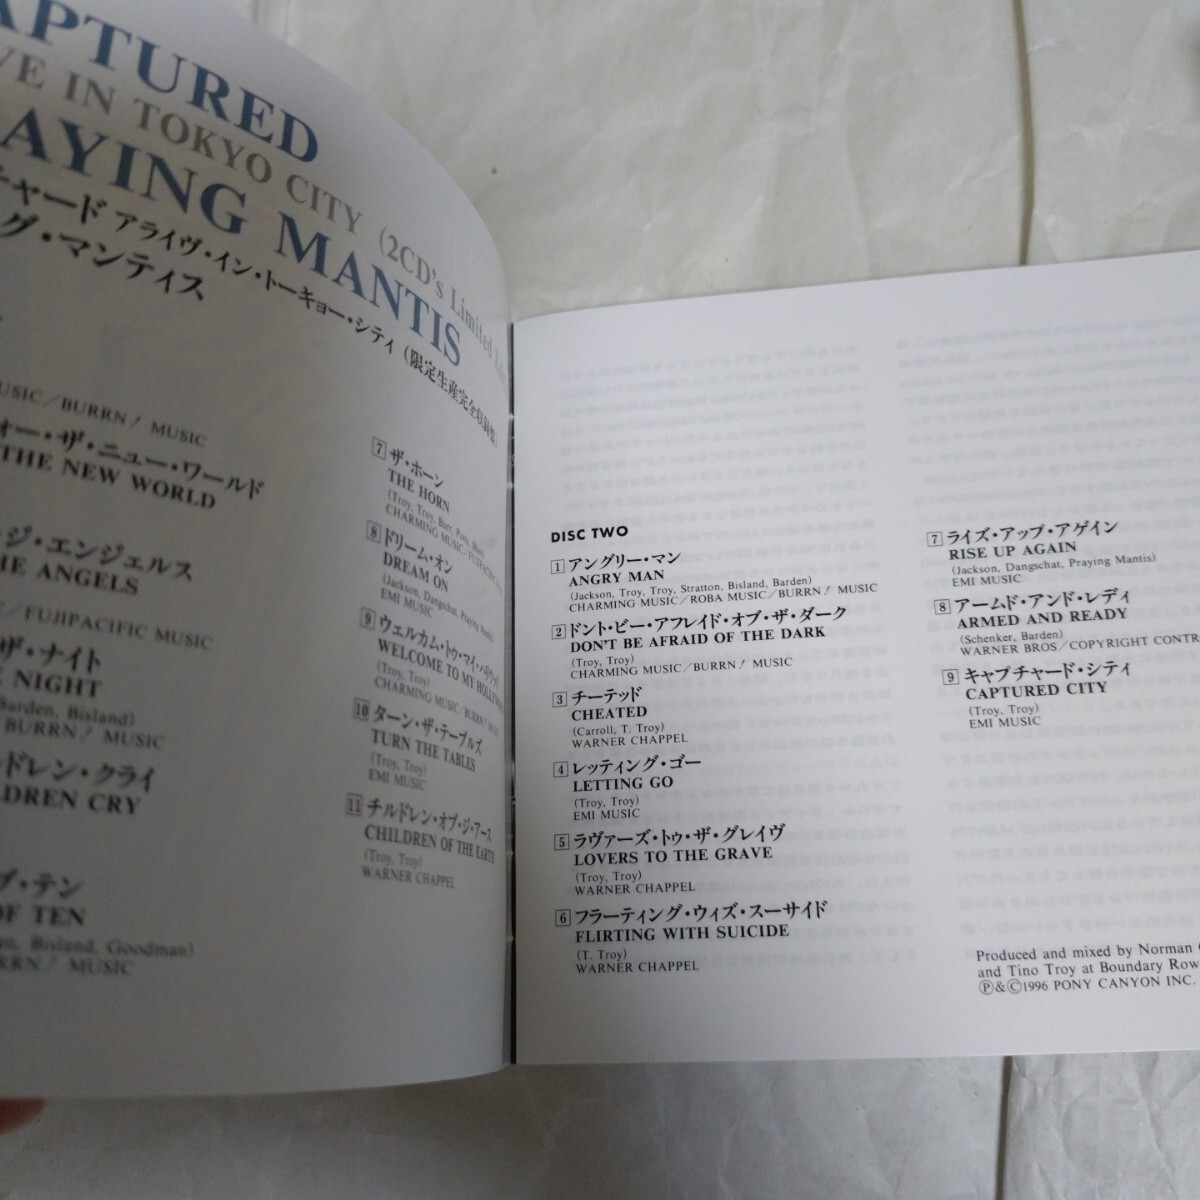 APTURED
VE IN TOKYO CITY (2CD's Limited
AYING MANTIS
チャード アライヴ・イン・トーキョー・シティ (限定生産完全収録盤)
グ・マンティス
USIC／BURRN! MUSIC
オー・ザ・ニュー・ワールド
THE NEW WORLD
ジ・エンジェルス
HE ANGELS
／FUJIPACIFIC MUSIC
ザ・ナイト
E NIGHT
Barden, Bisland)
BURRN! MUSIC
ルドレン・クライ
LDREN CRY
ブ・テン
OF TEN
en, Bisland, Goodman)
RRN! MUSIC
7 ザ・ホーン
THE HORN
(Troy, Troy, Burr, Potts,
CHARMING MUSIC／FUJIPACIFIC
8 ドリーム・オン
DREAM ON
(Jackson, Dangschat, Praying Mantis)
EMI MUSIC
9 ウェルカム・トゥ・マイ・ハリウッド
WELCOME TO MY HOLLYWOOD
(Troy, Troy)
CHARMING MUSIC／BURRN! MUSIC
10 ターン・ザ・テーブルズ
TURN THE TABLES
(Troy, Troy)
EMI MUSIC
11 チルドレン・オブ・ジ・アース
CHILDREN OF THE EARTH
(Troy, Troy)
WARNER CHAPPEL
DISC TWO
1 アングリー・マン
ANGRY MAN
(Jackson, Troy, Troy, Stratton, Bisland, Barden)
CHARMING MUSIC／ROBA MUSIC／BURRN! MUSIC
2 ドント・ビー・アフレイド・オブ・ザ・ダーク
DON'T BE AFRAID OF THE DARK
(Troy, Troy)
CHARMING MUSIC／BURRN! MUSIC
3 チーテッド
CHEATED
(Carroll, T. Troy)
WARNER CHAPPEL
4 レッティング・ゴー
LETTING GO
(Troy, Troy)
EMI MUSIC
5 ラヴァーズ・トゥ・ザ・グレイヴ
LOVERS TO THE GRAVE
(Troy, Troy)
WARNER CHAPPEL
6 フラーティング・ウィズ・スーサイド
FLIRTING WITH SUICIDE
(T. Troy)
WARNER CHAPPEL
7 ライズ・アップ・アゲイン
RISE UP AGAIN
(Jackson, Dangschat, Praying Mantis)
EMI MUSIC
8 アームド・アンド・レディ
ARMED AND READY
(Schenker, Barden)
WARNER BROS／COPYRIGHT CONTR
9 キャプチャード・シティ
CAPTURED CITY
(Troy, Troy)
EMI MUSIC
Produced and mixed by Norman
and Tino Troy at Boundary Row
Ⓟ&Ⓒ1996 PONY CANYON INC.